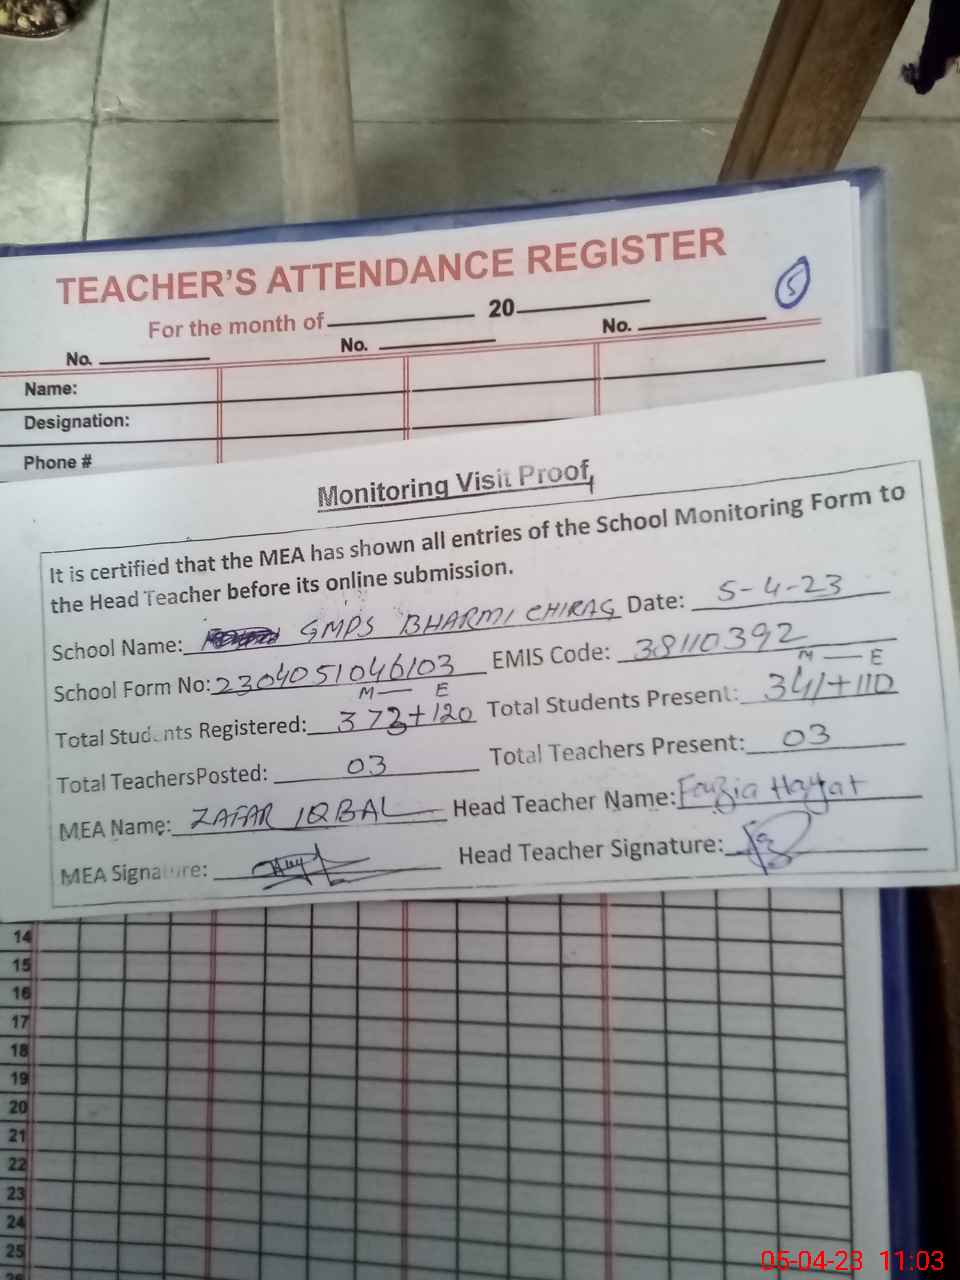 TEACHER'S ATTENDANCE REGISTER
5
For the month of 20
No. No. No.
Name:
Designation:
Phone #
Monitoring Visit Proof
It is certified that the MEA has shown all entries of the School Monitoring Form to
the Head Teacher before its online submission.
School Name: GMPS BHARMI CHIRAG Date: 5-4-23
School Form No: 2304051046103 EMIS Code: 38110392
M — E M — E
Total Students Registered: 373+120 Total Students Present: 341+110
Total TeachersPosted: 03 Total Teachers Present: 03
MEA Name: ZAFAR IQBAL Head Teacher Name: Fouzia Hayyat
MEA Signature: Head Teacher Signature:
14
15
16
17
18
19
20
21
22
23
24
25
05-04-23 11:03